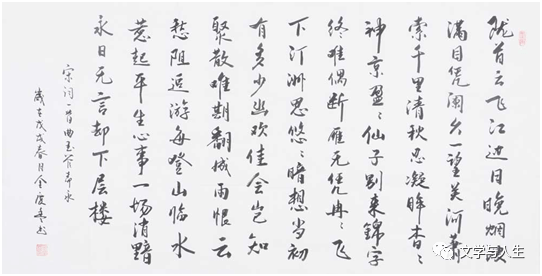 陇首云飞江边日晚烟波
满目凭阑久一望关河萧
索千里清秋忍凝眸杳々
神京盈々仙子别来锦字
终难偶断雁无凭冉々飞
下汀洲思悠々暗想当初
有多少幽欢佳会岂知
聚散难期翻城雨恨云
愁阻追游每登山临水
惹起平生心事一场消黯
永日无言却下层楼
宋词一首曲玉管柳永
岁在戊戌春月金
文学与人生